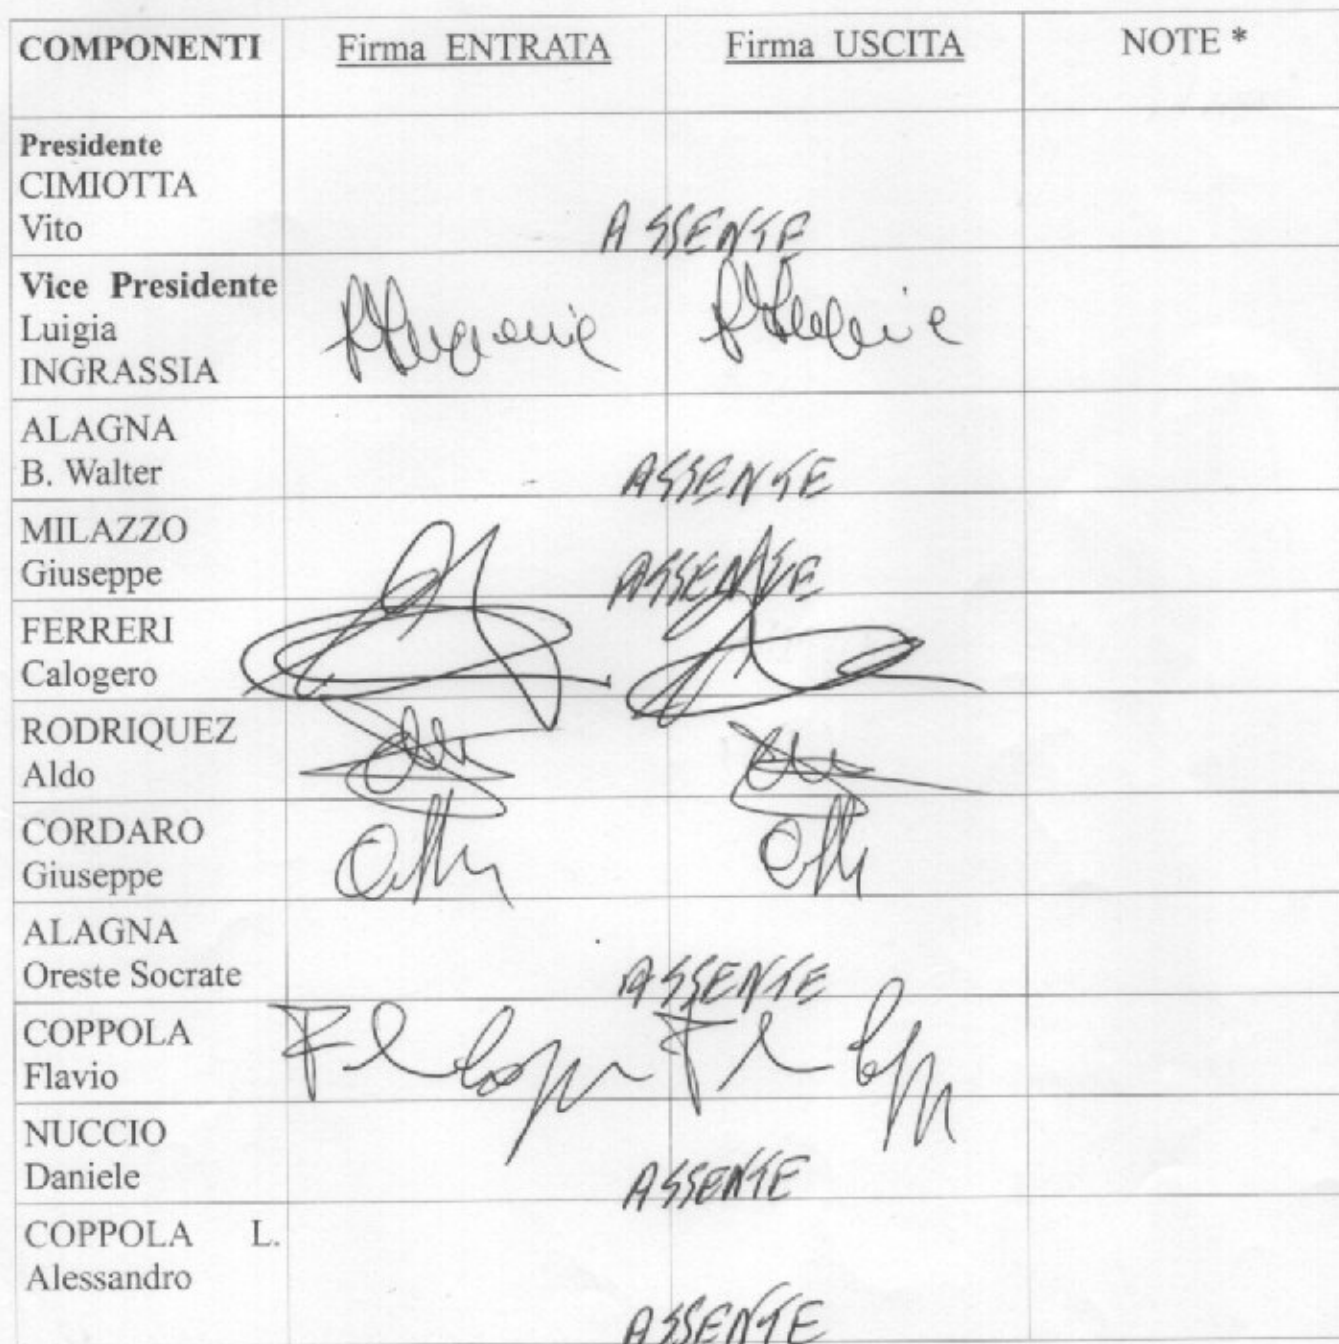 COMPONENTI Firma ENTRATA Firma USCITA NOTE *
Presidente
CIMIOTTA
Vito ASSENTE
Vice Presidente
Luigia
INGRASSIA
ALAGNA
B. Walter ASSENTE
MILAZZO
Giuseppe ASSENTE
FERRERI
Calogero
RODRIQUEZ
Aldo
CORDARO
Giuseppe
ALAGNA
Oreste Socrate ASSENTE
COPPOLA
Flavio
NUCCIO
Daniele ASSENTE
COPPOLA L.
Alessandro
ASSENTE